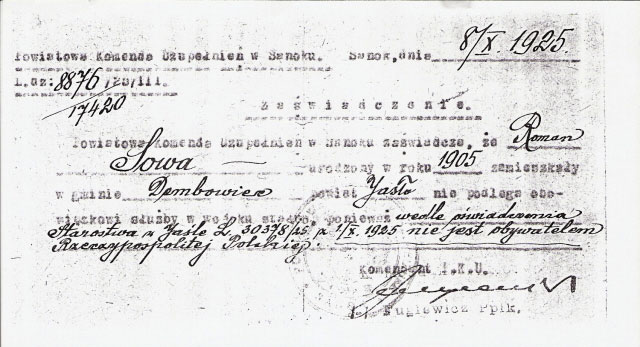 Powiatowa Komenda Uzupełnień w Sanoku. Sanok, dnia 8/IX. 1925.
L.dz: 8876/25/III.
17420
Zaświadczenie.
Powiatowa Komenda Uzupełnień w Sanoku zaświadcza, że Roman
Sowa — urodzony w roku 1905 zamieszkały
w gminie Dembowiec powiat Jasło nie podlega obo-
wiązkowi służby w wojsku stałem, ponieważ wedle oświadczenia
Starostwa z Jasle L. 30378/25 z 1/IX. 1925 nie jest obywatelem
Rzeczypospolitej Polskiej.
Komendant P.K.U.
Pugiewicz Ppłk.